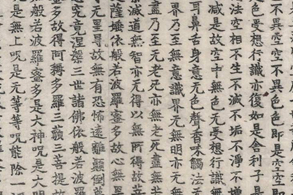 不異空空不異色色即是
色受想行識亦復如是舍利子
法空相不生不滅不垢不淨不增
減是故空中無色无受想行識
鼻舌身意无色聲香味觸法
界乃至无意識界无無明亦无
盡乃至无老死亦無老死盡无
滅道無智亦无得以無所得故
薩埵依般若波羅蜜多故心無罣
无罣故無有恐怖遠離顛倒
究竟涅槃三世諸佛依般若波羅
多故得阿耨多羅三藐三菩提
般若波羅蜜多是大神呪是大明
是無上呪是无等等呪能除一